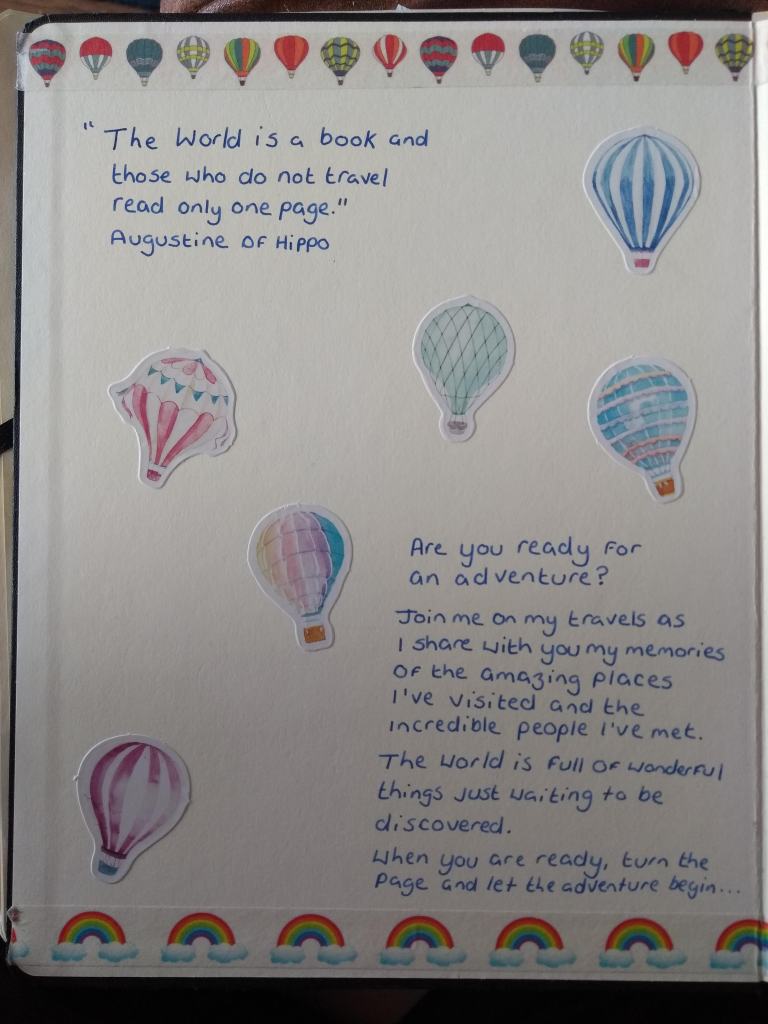 "The World is a book and
those who do not travel
read only one page."
Augustine of Hippo
Are you ready for
an adventure?
Join me on my travels as
I share with you my memories
of the amazing places
I've visited and the
incredible people I've met.
The world is full of wonderful
things just waiting to be
discovered.
When you are ready, turn the
page and let the adventure begin...